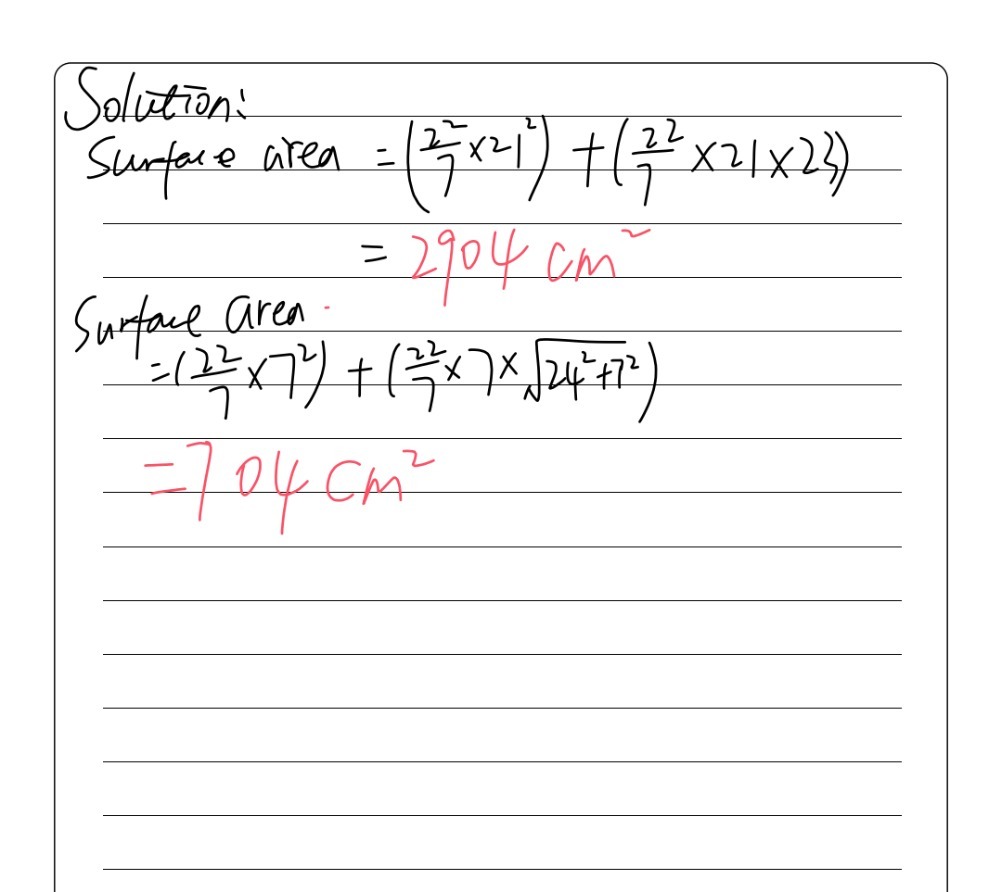 Solution:
Surface area = (22/7 × 21²) + (22/7 × 21 × 23)
= 2904 cm²
Surface area
= (22/7 × 7²) + (22/7 × 7 × √(24² + 7²))
= 704 cm²